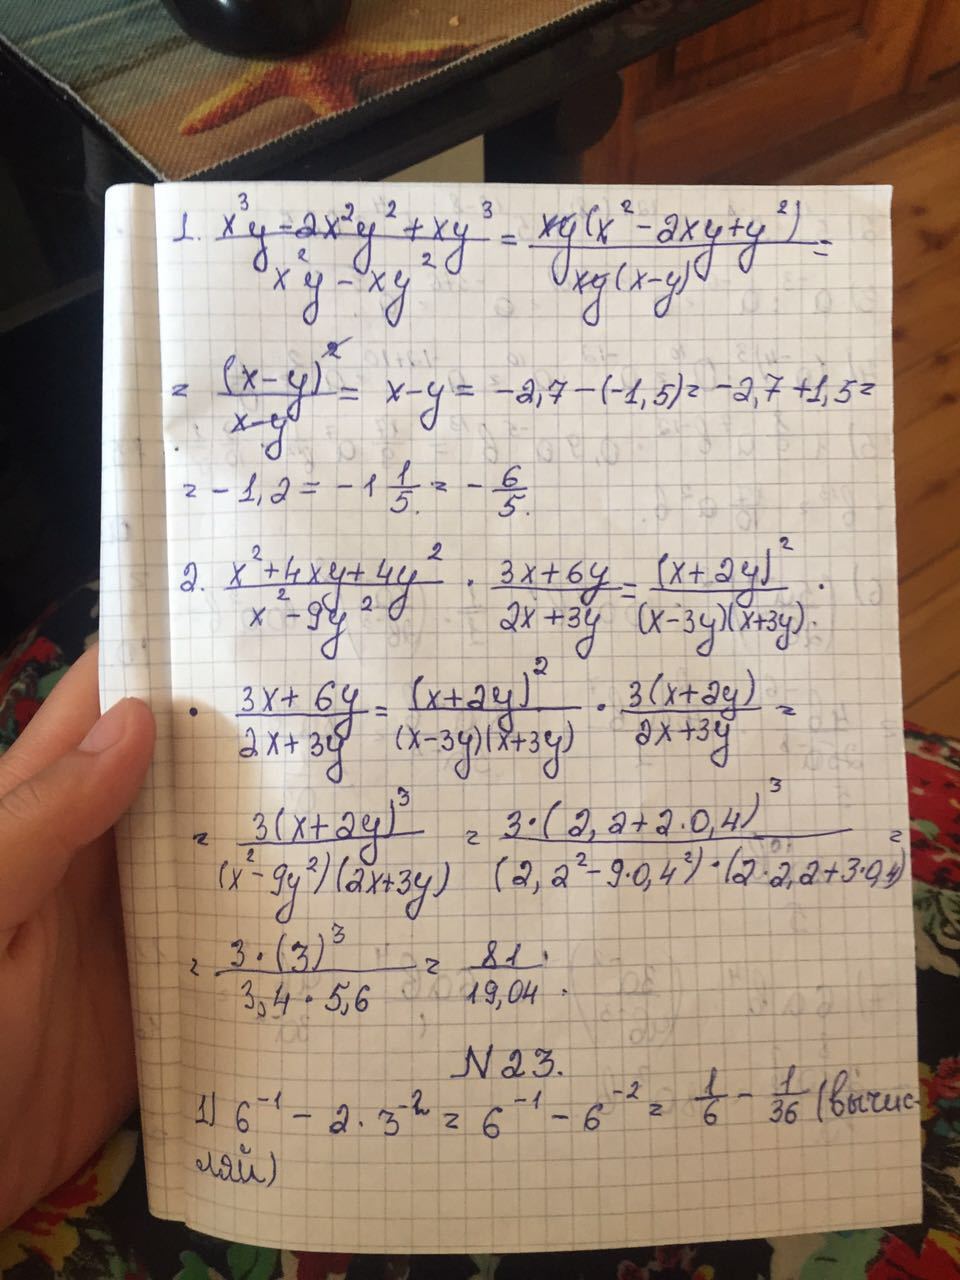 1. (x³y - 2x²y² + xy³)/(x²y - xy²) = (xy(x² - 2xy + y²))/(xy(x-y)) =
= (x-y)²/(x-y) = x-y = -2,7-(-1,5) = -2,7+1,5 =
= -1,2 = -1 1/5 = - 6/5.
2. (x²+4xy+4y²)/(x²-9y²) · (3x+6y)/(2x+3y) = (x+2y)²/((x-3y)(x+3y)) ·
· (3x+6y)/(2x+3y) = (x+2y)²/((x-3y)(x+3y)) · 3(x+2y)/(2x+3y) =
= 3(x+2y)³/((x²-9y²)(2x+3y)) = 3·(2,2+2·0,4)³/((2,2²-9·0,4²)·(2·2,2+3·0,4)) =
= 3·(3)³/(3,4·5,6) = 81/19,04.
N23.
1) 6⁻¹ - 2·3⁻² = 6⁻¹ - 6⁻² = 1/6 - 1/36 (вычис-
ляй)